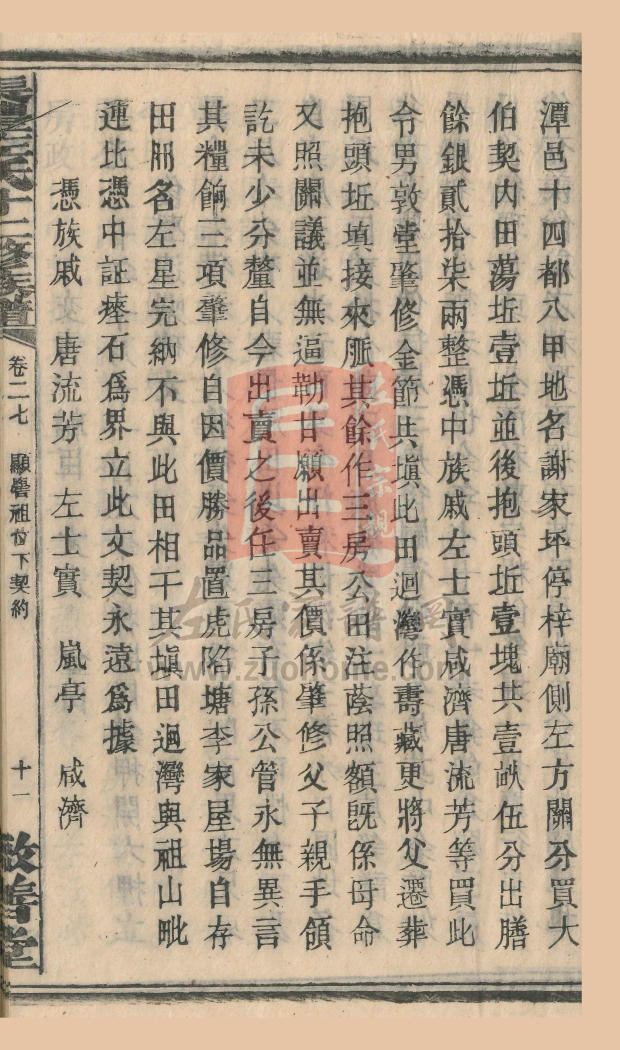 潭邑十四都八甲地名謝家坪停梓廟側左方關分買大
伯契内田蕩坵壹坵並後抱頭坵壹塊共壹畝伍分出膳
餘銀貳拾柒兩整憑中族戚左士實咸濟唐流芳等買此
令男敦堂肇修金節共塡此田迴灣作壽藏更將父遷葬
抱頭坵填接來脈其餘作三房公田注蔭照額旣係母命
又照關議並無逼勒甘願出賣其價係肇修父子親手領
訖未少分釐自今出賣之後任三房子孫公管永無異言
其糧餉三項肇修自因價勝品置虎陷塘李家屋場自存
田册名左星完納不與此田相干其塡田迴灣與祖山毗
連比憑中証瘞石爲界立此文契永遠爲據
憑族戚 唐流芳 左士實 嵐亭 咸濟
氏十二修族譜
卷二七 顯譽祖位下契約
十一
敦善堂
左氏宗親
www.zuohome.com